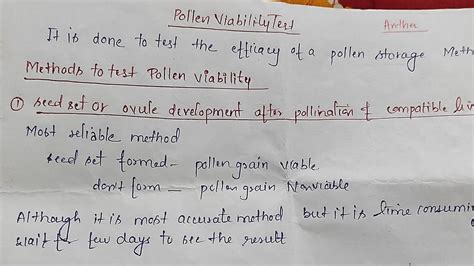 Pollen Viability Test
It is done to test the efficacy of a pollen storage Meth
Methods to test Pollen Viability
① seed set or ovule development after pollination of compatible
Most reliable method
seed set formed – pollen grain viable
don't form – pollen grain Nonviable
Although it is most accurate method but it is time consumin
wait for few days to see the result